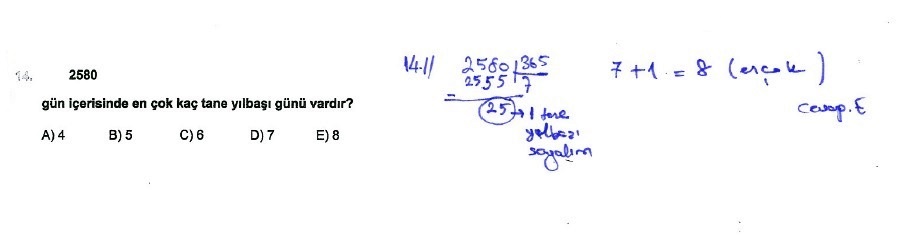 14. 2580
gün içerisinde en çok kaç tane yılbaşı günü vardır?
A) 4 B) 5 C) 6 D) 7 E) 8
14.// 2580 365
2555 7
25 → 1 tane
yılbaşı
sayalım
7 + 1 = 8 (ençok)
cevap. E